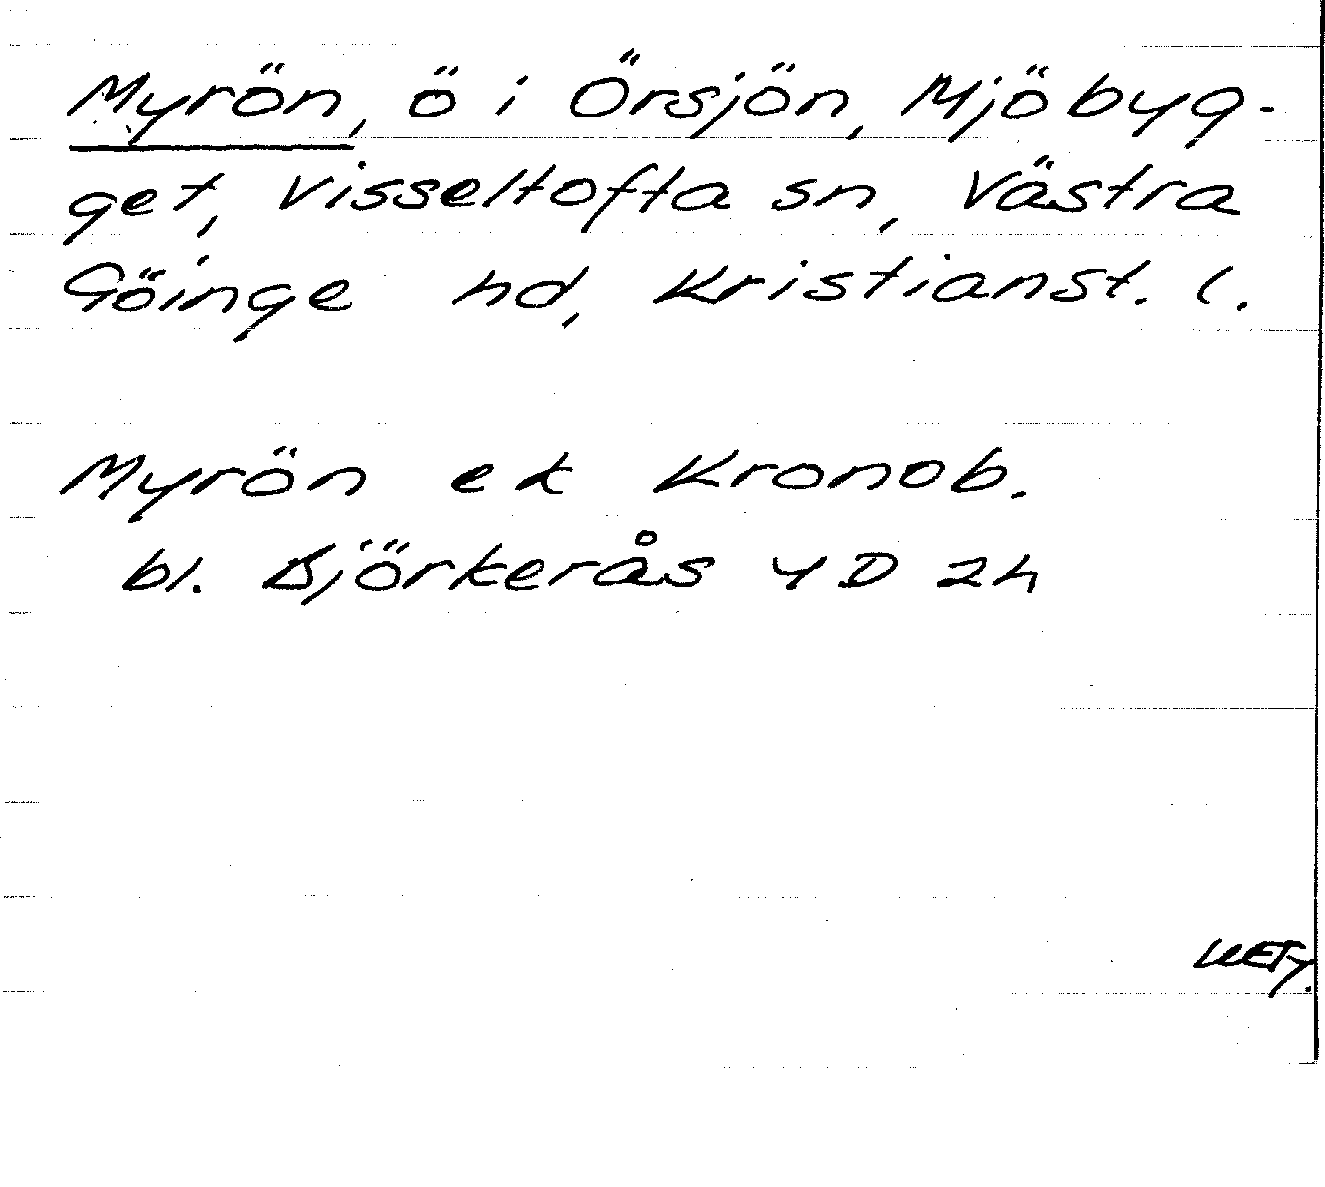 Myrön, ö i Örsjön, Mjöbyg-
get, Visseltofta sn, Västra
Göinge hd, Kristianst. l.
Myrön ek Kronob.
bl. Björkerås 4 D 2h